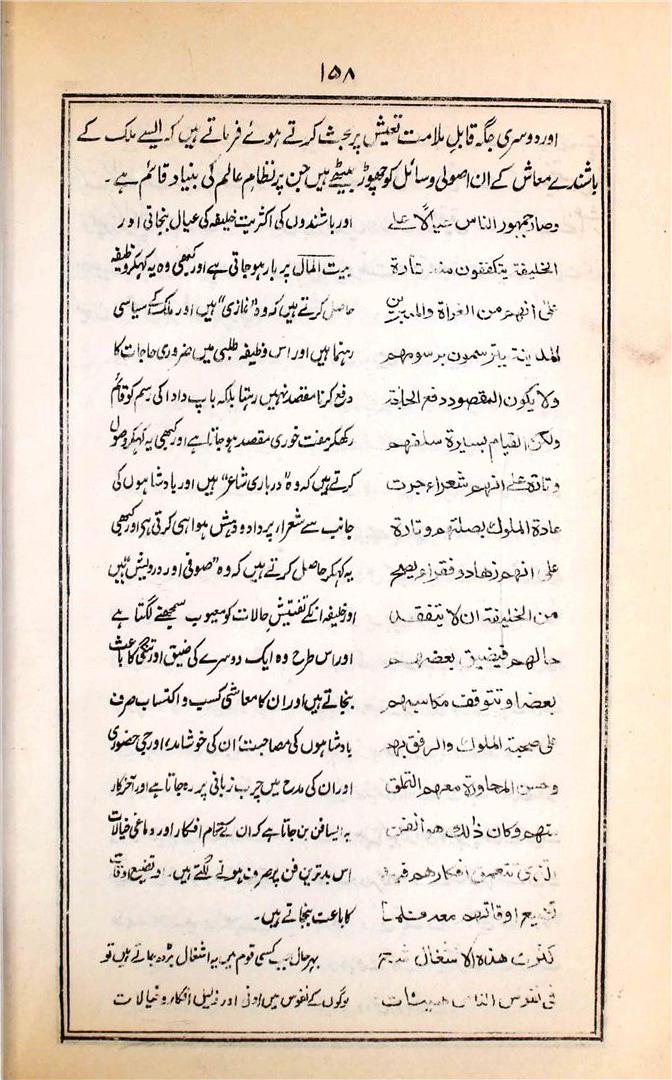 ۱۵۸
اور دوسری جگہ قابلِ ملامت تعیش پر بحث کرتے ہوئے فرماتے ہیں کہ ایسے ملک کے
باشندے معاش کے ان اصولی وسائل کو چھوڑ بیٹھے ہیں جن پر نظامِ عالم کی بنیاد قائم ہے۔
وصار جمہور الناس عیالًا علی
الخلیفۃ یتکففون منہ تارۃ
علیٰ انھم من الغزاۃ والمدبرین
للمدینۃ یترسمون برسومھم
ولا یکون المقصود دفع الحاجۃ
ولکن القیام بسیرۃ سلفھم
وتارۃ علی انھم شعراء جرت
عادۃ الملوک بصلتھم وتارۃ
علی انھم زھاد وفقراء یصلح
من الخلیفۃ ان لا یتفقد
حالھم فیضیق بعضھم
بعضا وتتوقف مکاسبھم
علی صحبۃ الملوک والرفق بھم
وحسن المحاورۃ معھم والتملق
منھم وکان ذالک ھو الفن
الذی تتعمق افکارھم فیہ و
تضیع اوقاتھم معہ فلما
کثرت ھذہ الاشغال
فی نفوس الناس ھیئات
اور باشندوں کی اکثریت خلیفہ کی عیال بنجاتی اور
بیت المال پر بار ہو جاتی ہے اور کبھی وہ یہ کہکر وظیفہ
حاصل کرتے ہیں کہ وہ "غازی" ہیں اور ملک کے سیاسی
رہنما ہیں اور اس وظیفہ طلبی میں ضروری حاجات کا
رفع کرنا مقصد نہیں رہتا بلکہ باپ دادا کی رسم کو قائم
رکھکر مفت خوری مقصد ہو جاتا ہے اور کبھی یہ کہکر وصول
کرتے ہیں کہ وہ "درباری شاعر" ہیں اور بادشاہوں کی
جانب سے شعراء پر داد و دہش ہوا ہی کرتی ہی اور کبھی
یہ کہکر حاصل کرتے ہیں کہ وہ "صوفی اور درویش" ہیں
اور خلیفہ انکے تفتیشِ حالات کو معیوب سمجھنے لگتا ہے
اور اس طرح وہ ایک دوسرے کی ضیق اور تنگی کا باعث
بنجاتے ہیں اور ان کا معاشی کسب و اکتساب صرف
بادشاہوں کی مصاحبت، ان کی خوشامد، اور جی حضوری
اور ان کی مدح میں چرب زبانی پر رہ جاتا ہے اور آخرکار
یہ ایسا فن بن جاتا ہے کہ ان کے تمام افکار اور دماغی خیالات
اس بدترین فن پر صرف ہونے لگتے ہیں۔ اور تضیعِ اوقات
کا باعث بنجاتے ہیں۔
بہرحال جب کسی قوم میں یہ اشغال بڑھ جاتے ہیں تو
لوگوں کے نفوس میں ادنی اور ذلیل افکار و خیالات